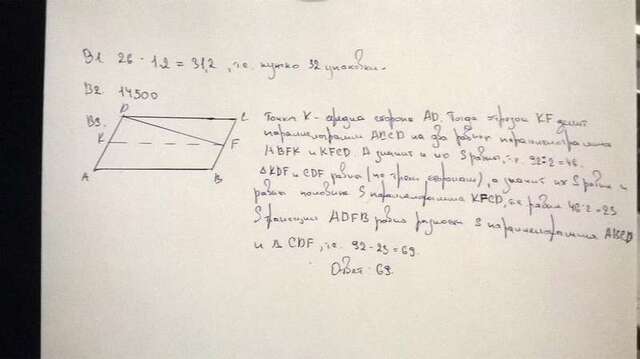 B1 26 · 1,2 = 31,2 , т.е. нужно 32 упаковки.
B2 14500
B3.
D C
K F
A B
Точка K - средина стороны AD. Тогда отрезок KF делит
параллелограмм ABCD на два равных параллелограмма
ABFK и KFCD. А значит и их S равны, т.е. 92:2=46.
ΔKDF и CDF равны (по трем сторонам), а значит их S равны и
равны половине S параллелограмма KFCD, т.е. равны 46:2=23
S трапеции ADFB равна разности S параллелограмма ABCD
и Δ CDF, т.е. 92-23=69.
Ответ: 69.